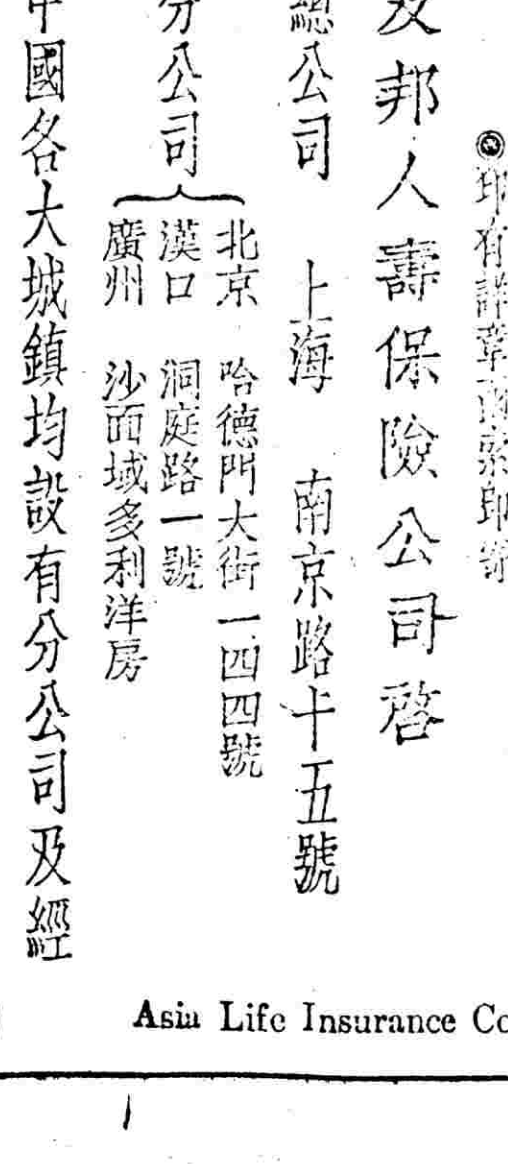 印有詳章函索即寄
友邦人壽保險公司啓
總公司 上海 南京路十五號
分公司
北京 哈德門大街一四四號
漢口 洞庭路一號
廣州 沙面域多利洋房
中國各大城鎮均設有分公司及經
Asia Life Insurance Co